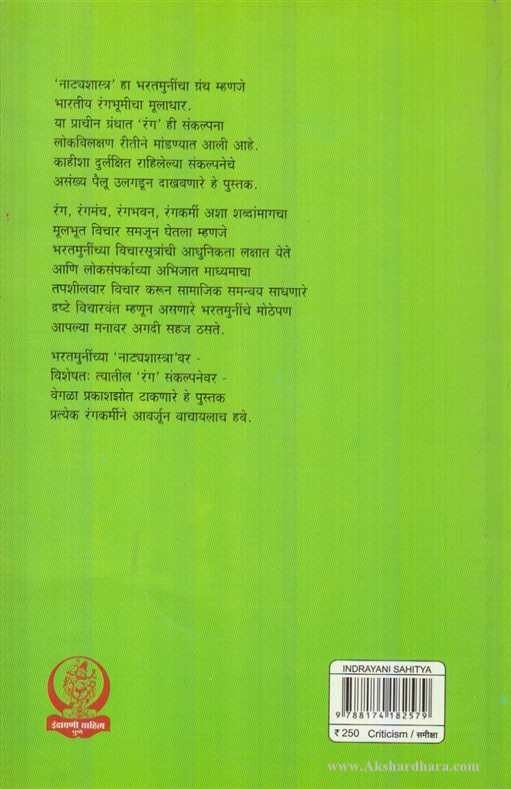 'नाट्यशास्त्र' हा भरतमुनींचा ग्रंथ म्हणजे
भारतीय रंगभूमीचा मूलाधार.
या प्राचीन ग्रंथात 'रंग' ही संकल्पना
लोकविलक्षण रीतीने मांडण्यात आली आहे.
काहीशा दुर्लक्षित राहिलेल्या संकल्पनेचे
असंख्य पैलू उलगडून दाखवणारे हे पुस्तक.
रंग, रंगमंच, रंगभवन, रंगकर्मी अशा शब्दांमागचा
मूलभूत विचार समजून घेतला म्हणजे
भरतमुनींच्या विचारसूत्रांची आधुनिकता लक्षात येते
आणि लोकसंपर्काच्या अभिजात माध्यमाचा
तपशीलवार विचार करून सामाजिक समन्वय साधणारे
द्रष्टे विचारवंत म्हणून असणारे भरतमुनींचे मोठेपण
आपल्या मनावर अगदी सहज ठसते.
भरतमुनींच्या 'नाट्यशास्त्रा'वर -
विशेषतः त्यातील 'रंग' संकल्पनेवर -
वेगळा प्रकाशझोत टाकणारे हे पुस्तक
प्रत्येक रंगकर्मीने आवर्जून वाचायलाच हवे.
इंद्रायणी साहित्य
पुणे
INDRAYANI SAHITYA
9 788174 182579
₹ 250 Criticism / समीक्षा
www.Akshardhara.com